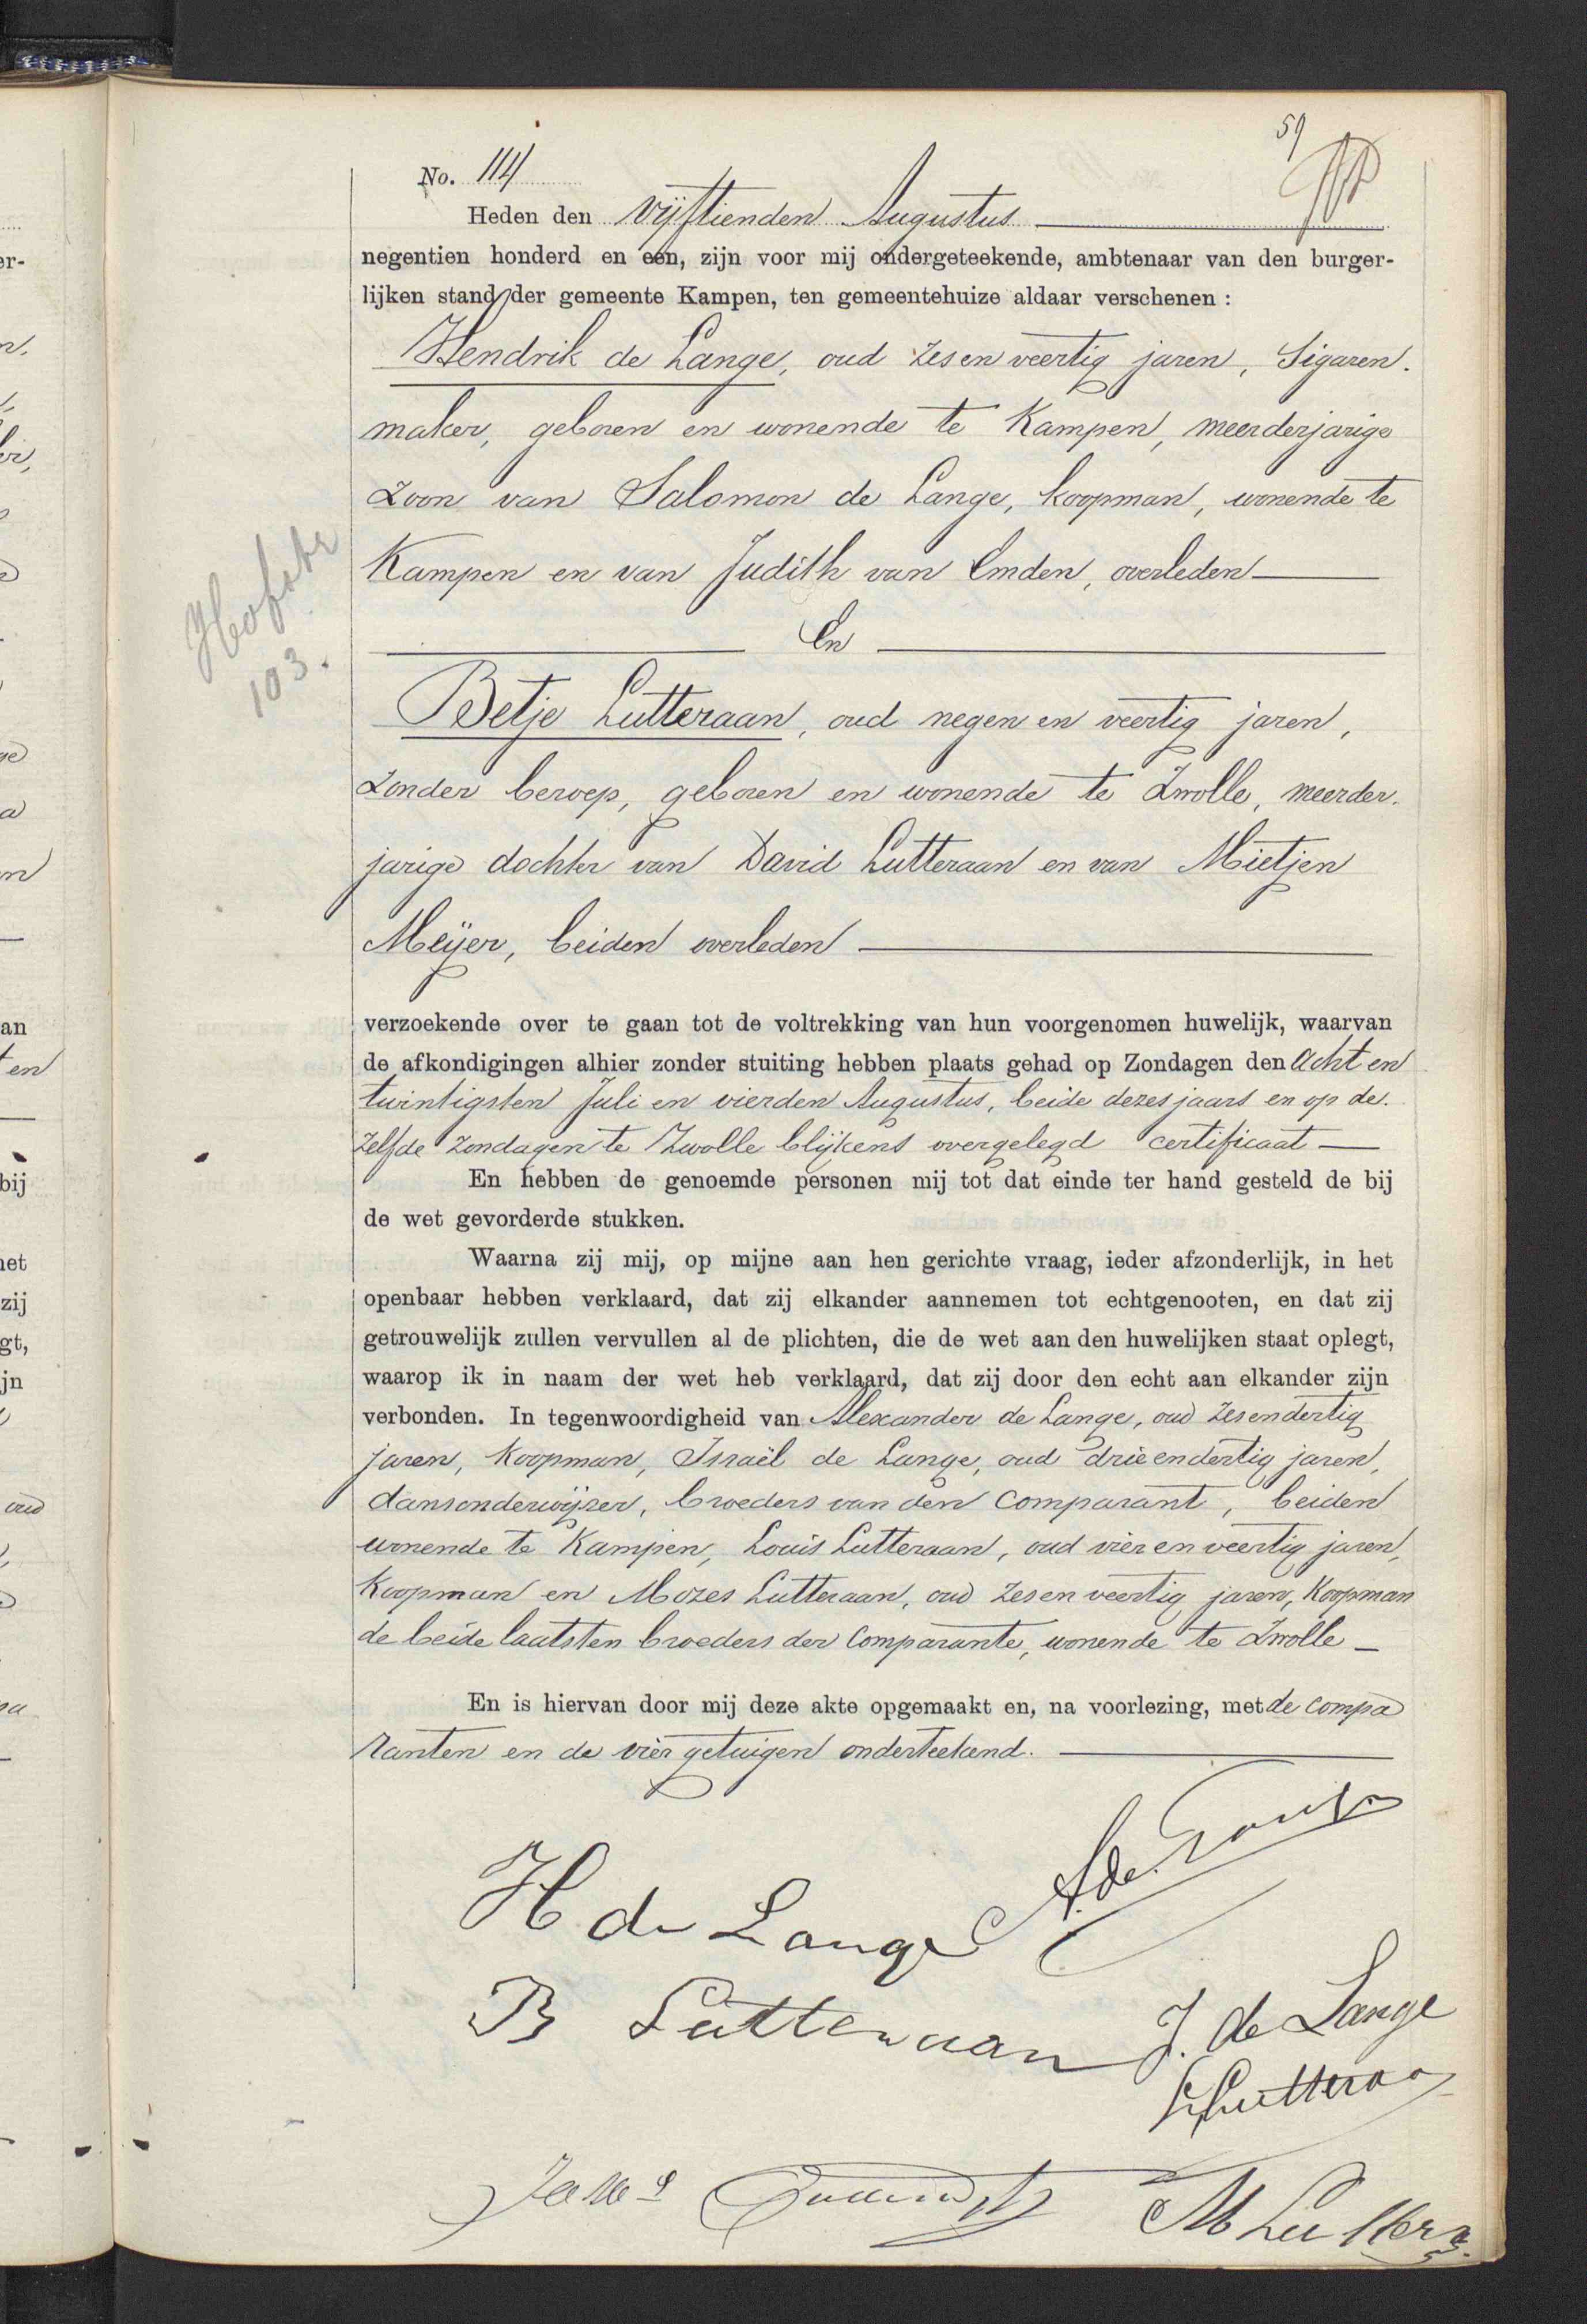 59
No. 114
Heden den vijftienden Augustus
negentien honderd en een, zijn voor mij ondergeteekende, ambtenaar van den burger-
lijken stand der gemeente Kampen, ten gemeentehuize aldaar verschenen :
Hendrik de Lange, oud zes en veertig jaren, Sigaren-
maker, geboren en wonende te Kampen, meerderjarige
zoon van Salomon de Lange, koopman, wonende te
Kampen en van Judith van Emden, overleden
En
103.
Betje Lutteraan, oud negen en veertig jaren,
zonder beroep, geboren en wonende te Zwolle, meerder-
jarige dochter van David Lutteraan en van Mietjen
Meijer, beiden overleden
verzoekende over te gaan tot de voltrekking van hun voorgenomen huwelijk, waarvan
de afkondigingen alhier zonder stuiting hebben plaats gehad op Zondagen den acht en
twintigsten Juli en vierden Augustus, beide dezes jaars en op de-
zelfde zondagen te Zwolle blijkens overgelegd certificaat
En hebben de genoemde personen mij tot dat einde ter hand gesteld de bij
de wet gevorderde stukken.
Waarna zij mij, op mijne aan hen gerichte vraag, ieder afzonderlijk, in het
openbaar hebben verklaard, dat zij elkander aannemen tot echtgenooten, en dat zij
getrouwelijk zullen vervullen al de plichten, die de wet aan den huwelijken staat oplegt,
waarop ik in naam der wet heb verklaard, dat zij door den echt aan elkander zijn
verbonden. In tegenwoordigheid van Alexander de Lange, oud zesendertig
jaren, koopman, Israël de Lange, oud drieendertig jaren,
dansonderwijzer, broeders van den comparant, beiden
wonende te Kampen, Louis Lutteraan, oud vier en veertig jaren,
koopman en Mozes Lutteraan, oud zes en veertig jaren, koopman
de beide laatsten broeders der comparante, wonende te Zwolle
En is hiervan door mij deze akte opgemaakt en, na voorlezing, met de compa
ranten en de vier getuigen onderteekend.
A. de Lange
H de Lange
B Lutteraan
J. de Lange
L Lutteraan
M Lutteraan